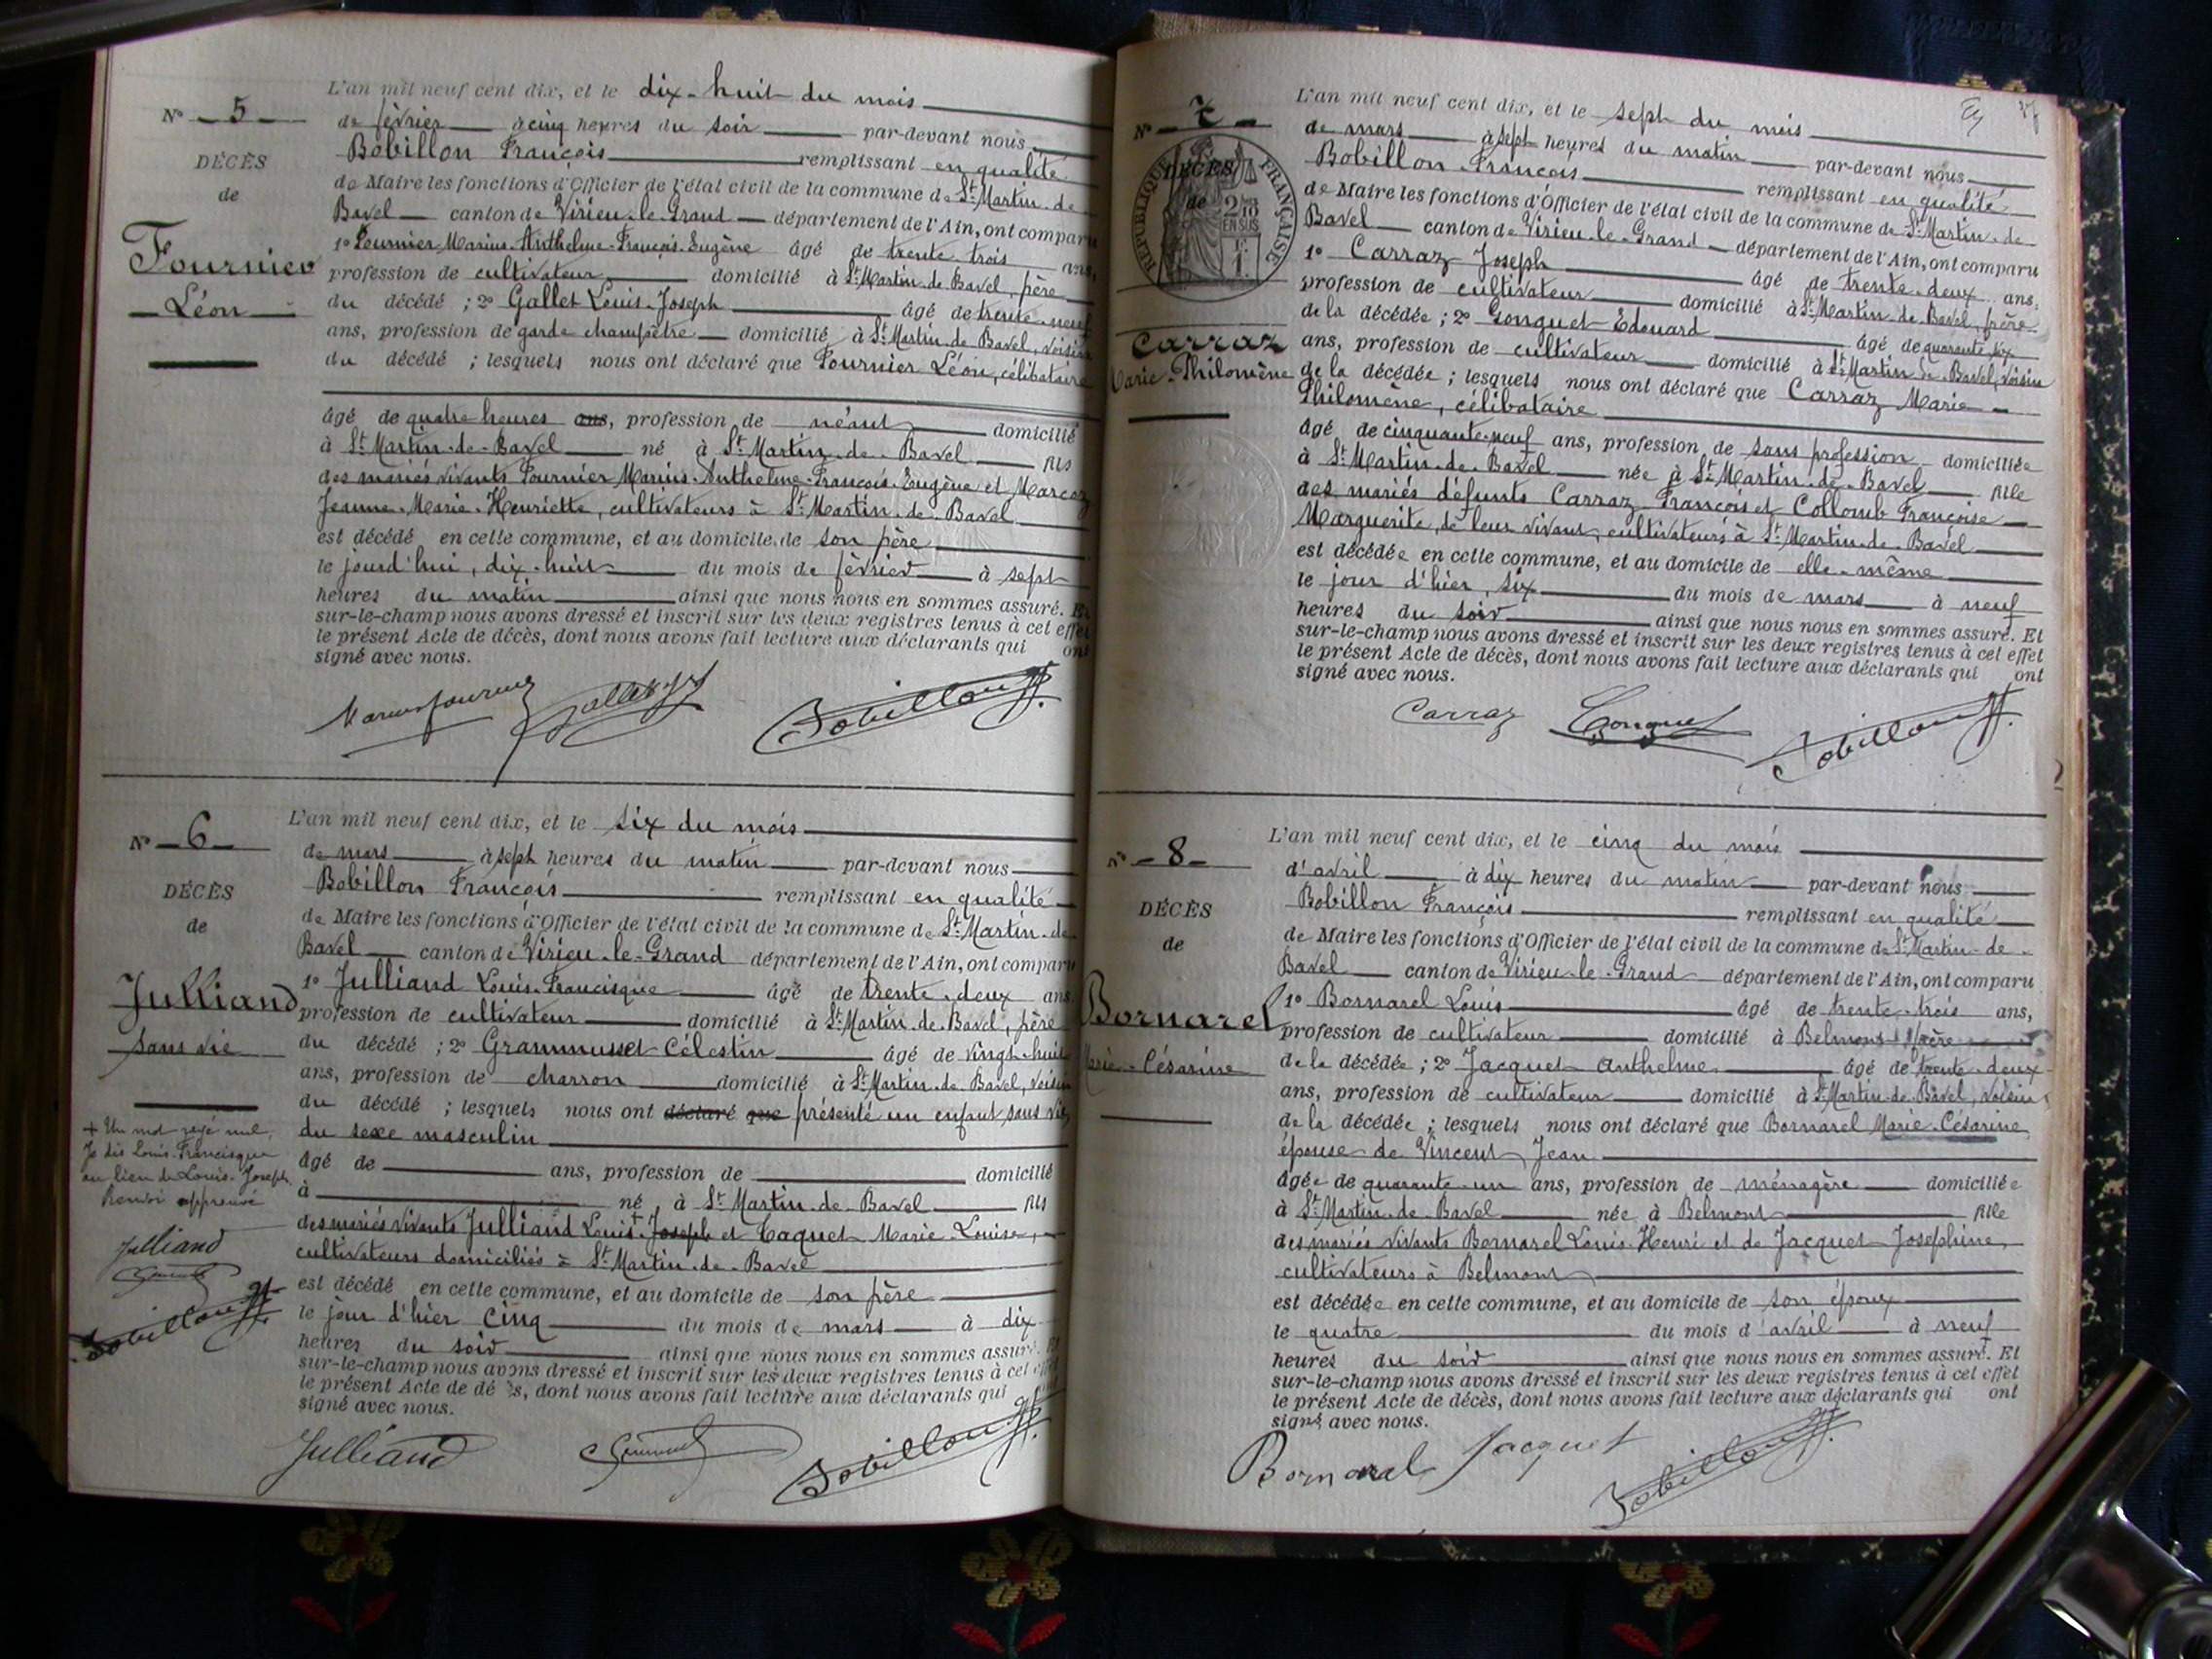 N° 5
DÉCÈS
de
Fournier
Léon
L'an mil neuf cent dix, et le dix-huit du mois
de février à cinq heures du soir par-devant nous
Bobillon François remplissant en qualité
de Maire les fonctions d'Officier de l'état civil de la commune de St Martin-de-
Bavel canton de Virieu-le-Grand département de l'Ain, ont comparu
1° Fournier Marius-Anthelme-François-Eugène âgé de trente-trois ans,
profession de cultivateur domicilié à St Martin-de-Bavel, père
du décédé ; 2° Gallet Louis-Joseph âgé de trente-neuf
ans, profession de garde champêtre domicilié à St Martin-de-Bavel, voisin
du décédé ; lesquels nous ont déclaré que Fournier Léon, célibataire
âgé de quatre heures ans, profession de néant domicilié
à St Martin-de-Bavel né à St Martin-de-Bavel fils
des mariés vivants Fournier Marius-Anthelme-François-Eugène et Marcoz
Jeanne-Marie-Henriette, cultivateurs à St Martin-de-Bavel
est décédé en cette commune, et au domicile de son père
le jourd'hui, dix-huit du mois de février à sept
heures du matin ainsi que nous nous en sommes assuré. Et
sur-le-champ nous avons dressé et inscrit sur les deux registres tenus à cet effet
le présent Acte de décès, dont nous avons fait lecture aux déclarants qui ont
signé avec nous.
Marius Fournier Gallet Bobillon
N° 6
DÉCÈS
de
Julliand
sans vie
+ Un mot rayé nul,
Je dis Louis-Francisque
au lieu de Louis-Joseph
Renvoi approuvé
Julliand
Bobillon
L'an mil neuf cent dix, et le six du mois
de mars à sept heures du matin par-devant nous
Bobillon François remplissant en qualité
de Maire les fonctions d'Officier de l'état civil de la commune de St Martin-de-
Bavel canton de Virieu-le-Grand département de l'Ain, ont comparu
1° Julliand Louis-Francisque âgé de trente-deux ans,
profession de cultivateur domicilié à St Martin-de-Bavel, père
du décédé ; 2° Grammusset Célestin âgé de vingt-huit
ans, profession de charron domicilié à St Martin-de-Bavel, voisin
du décédé ; lesquels nous ont déclaré que présenté un enfant sans vie,
du sexe masculin
âgé de ans, profession de domicilié
à né à St Martin-de-Bavel fils
des mariés vivants Julliand Louis+ Joseph et Caquet Marie-Louise,
cultivateurs domiciliés à St Martin-de-Bavel
est décédé en cette commune, et au domicile de son père
le jour d'hier cinq du mois de mars à dix
heures du soir ainsi que nous nous en sommes assuré. Et
sur-le-champ nous avons dressé et inscrit sur les deux registres tenus à cet effet
le présent Acte de décès, dont nous avons fait lecture aux déclarants qui ont
signé avec nous.
Julliand Bobillon
N° 7
DÉCÈS
de
RÉPUBLIQUE FRANÇAISE
2/10
EN SUS
Carraz
Marie-Philomène
L'an mil neuf cent dix, et le sept du mois
de mars à sept heures du matin par-devant nous
Bobillon François remplissant en qualité
de Maire les fonctions d'Officier de l'état civil de la commune de St Martin-de-
Bavel canton de Virieu-le-Grand département de l'Ain, ont comparu
1° Carraz Joseph âgé de trente-deux ans,
profession de cultivateur domicilié à St Martin-de-Bavel, frère
de la décédée ; 2° Gonguet Edouard âgé de quarante-six
ans, profession de cultivateur domicilié à St Martin-de-Bavel, voisin
de la décédée ; lesquels nous ont déclaré que Carraz Marie-
Philomène, célibataire
âgé de cinquante-neuf ans, profession de sans profession domiciliée
à St Martin-de-Bavel née à St Martin-de-Bavel fille
des mariés défunts Carraz François et Collomb Françoise
Marguerite, de leur vivant, cultivateurs à St Martin-de-Bavel
est décédée en cette commune, et au domicile de elle-même
le jour d'hier, six du mois de mars à neuf
heures du soir ainsi que nous nous en sommes assuré. Et
sur-le-champ nous avons dressé et inscrit sur les deux registres tenus à cet effet
le présent Acte de décès, dont nous avons fait lecture aux déclarants qui ont
signé avec nous.
Carraz Gonguet Bobillon
N° 8
DÉCÈS
de
Bornarel
Marie-Césarine
L'an mil neuf cent dix, et le cinq du mois
d'avril à dix heures du matin par-devant nous
Bobillon François remplissant en qualité
de Maire les fonctions d'Officier de l'état civil de la commune de St Martin-de-
Bavel canton de Virieu-le-Grand département de l'Ain, ont comparu
1° Bornarel Louis âgé de trente-trois ans,
profession de cultivateur domicilié à Belmont, frère
de la décédée ; 2° Jacquet Anthelme âgé de trente-deux
ans, profession de cultivateur domicilié à St Martin-de-Bavel, voisin
de la décédée ; lesquels nous ont déclaré que Bornarel Marie-Césarine,
épouse de Vincent Jean
âgée de quarante-un ans, profession de ménagère domiciliée
à St Martin-de-Bavel née à Belmont fille
des mariés vivants Bornarel Louis-Henri et de Jacquet Josephine,
cultivateurs à Belmont
est décédée en cette commune, et au domicile de son époux
le quatre du mois d'avril à neuf
heures du soir ainsi que nous nous en sommes assuré. Et
sur-le-champ nous avons dressé et inscrit sur les deux registres tenus à cet effet
le présent Acte de décès, dont nous avons fait lecture aux déclarants qui ont
signé avec nous.
Bornarel Jacquet Bobillon